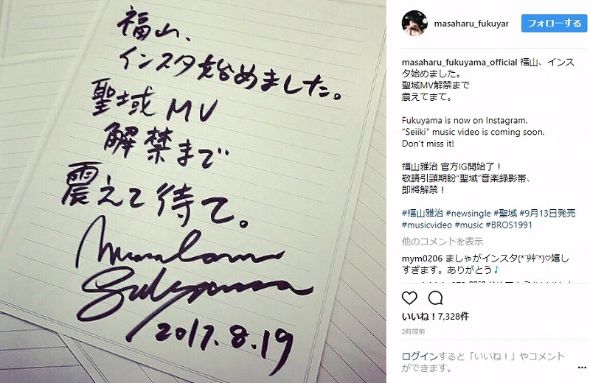 福山、
インスタ始めました。
聖域 MV
解禁まで
震えて待て。
Masaharu
Fukuyama
2017.8.19
masaharu_fukuyar
フォローする
masaharu_fukuyama_official 福山、インス
タ始めました。
聖域MV解禁まで
震えてまて。
Fukuyama is now on Instagram.
"Seiiki" music video is coming soon.
Don't miss it!
福山雅治 官方IG開始了！
敬請引頸期盼“聖域”音楽録影帯、
即將解禁！
#福山雅治 #newsingle #聖域 #9月13日発売
#musicvideo #music #BROS1991
他のコメントを表示
mym0206 ましゃがインスタ(*´艸`*)♡嬉し
すぎます。ありがとう♪
いいね！7,328件
2時間前
ログインすると「いいね！」やコメント
ができます。